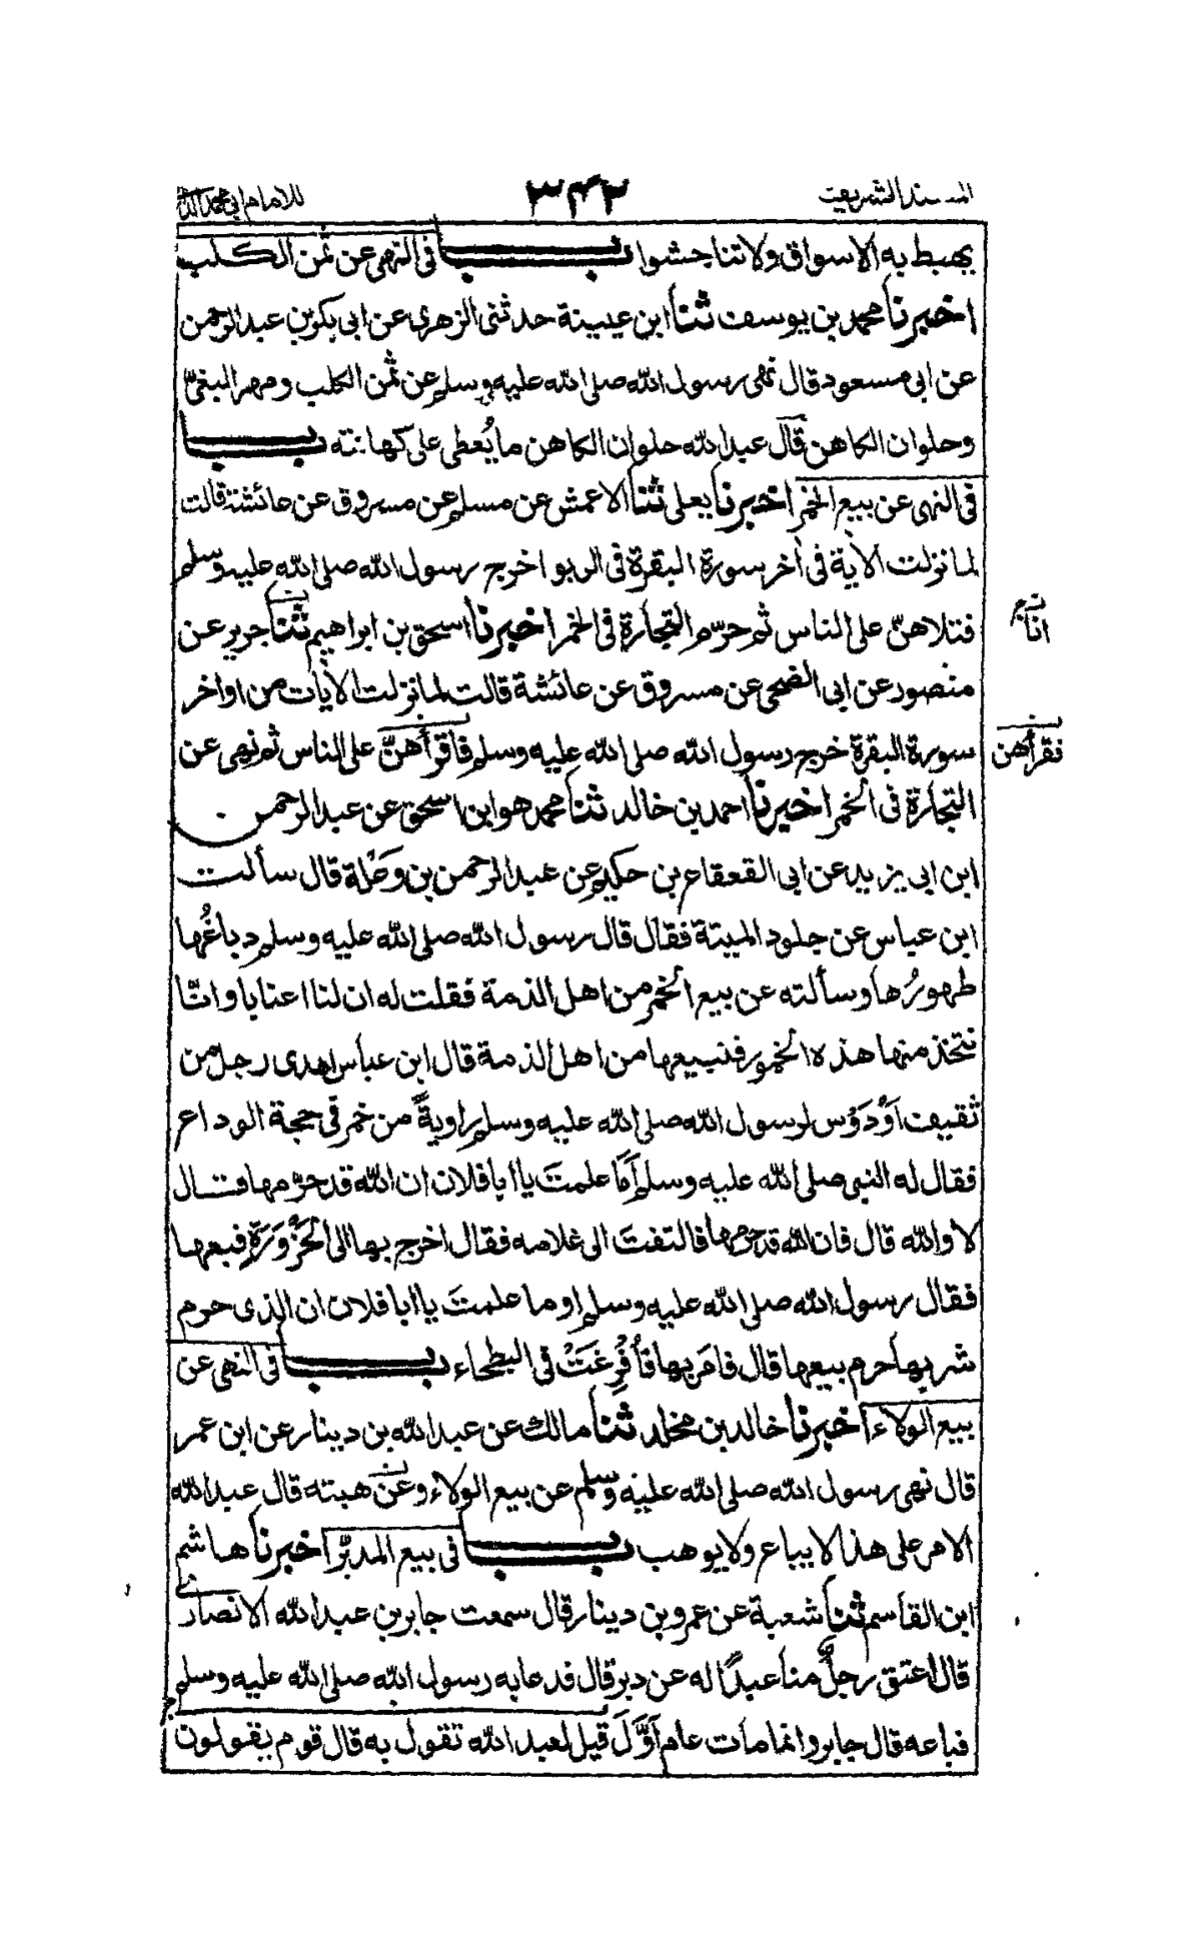 المسند الشريف
٣٤٢
للامام ابى محمد
يهبط به الاسواق ولا تناجشوا باب فى النهى عن ثمن الكلب
اخبرنا محمد بن يوسف ثنا ابن عيينة حدثنى الزهرى عن ابى بكر بن عبد الرحمن
عن ابى مسعود قال نهى رسول الله صلى الله عليه وسلم عن ثمن الكلب ومهر البغىّ
وحلوان الكاهن قال عبد الله حلوان الكاهن ما يُعطى على كهانته باب
فى النهى عن بيع الخمر اخبرنا يعلى ثنا الاعمش عن مسلم عن مسروق عن عائشة قالت
لما نزلت الآية فى آخر سورة البقرة فى الربو اخرج رسول الله صلى الله عليه وسلم
فتلاهنّ على الناس ثم حرّم التجارة فى الخمر اخبرنا اسحق بن ابراهيم ثنا جرير عن
انا
منصور عن ابى الضحى عن مسروق عن عائشة قالت لما نزلت الآيات من اواخر
سورة البقرة خرج رسول الله صلى الله عليه وسلم فاقرأهنّ على الناس ثم نهى عن
فقرأهن
التجارة فى الخمر اخبرنا احمد بن خالد ثنا محمد هو ابن اسحق عن عبد الرحمن
ابن ابى يزيد عن ابى القعقاع بن حكيم عن عبد الرحمن بن وَعْلة قال سألت
ابن عباس عن جلود الميتة فقال قال رسول الله صلى الله عليه وسلم دباغُها
طهورُها وسألته عن بيع الخمر من اهل الذمة فقلت له ان لنا اعنابا وانّا
نتخذ منها هذه الخمور فنبيعها من اهل الذمة قال ابن عباس اهدى رجل من
ثقيف اَوْ دَوْس لرسول الله صلى الله عليه وسلم راويةً من خمر فى حجة الوداع
فقال له النبى صلى الله عليه وسلم اَمَا علمتَ يا ابا فلان ان الله قد حرّمها فقال
لا والله قال فان الله قد حرمها فالتفتَ الى غلامه فقال اخرج بها الى الحَزْوَرَة فبعها
فقال رسول الله صلى الله عليه وسلم اوما علمتَ يا ابا فلان ان الذى حرم
شربها حرم بيعها قال فامَر بها فأُفْرِغَتْ فى البطحاء باب فى النهى عن
بيع الولاء اخبرنا خالد بن مخلد ثنا مالك عن عبد الله بن دينار عن ابن عمر
قال نهى رسول الله صلى الله عليه وسلم عن بيع الولاء وعن هبته قال عبد الله
الامر على هذا لا يباع ولا يوهب باب فى بيع المدبّر اخبرنا هاشم
ابن القاسم ثنا شعبة عن عمرو بن دينار قال سمعت جابر بن عبد الله الانصارى
قال اعتق رجلٌ منا عبدًا له عن دبر قال فدعا به رسول الله صلى الله عليه وسلم
فباعه قال جابر وانما مات عام اَوَّلَ قيل لعبد الله تقول به قال قوم يقولون